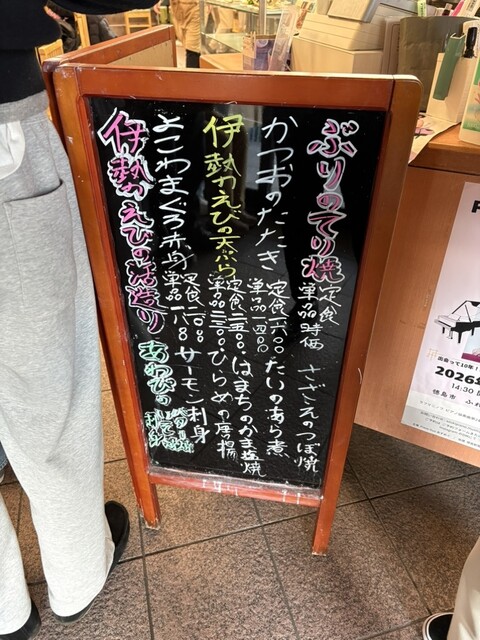 ぶりのてり焼 定食
単品 時価
さざえのつぼ焼
かつおのたたき 定食一六〇〇
単品一四〇〇
たいのあら煮
伊勢えびの天ぷら 定食二五〇〇
単品二三〇〇
はまちのかま塩焼
ひらめの唐揚
よこわまぐろ赤身 定食二〇〇〇
単品一八〇〇
サーモン刺身
伊勢えびの活造り
あわびの
2026
14:30
徳島市